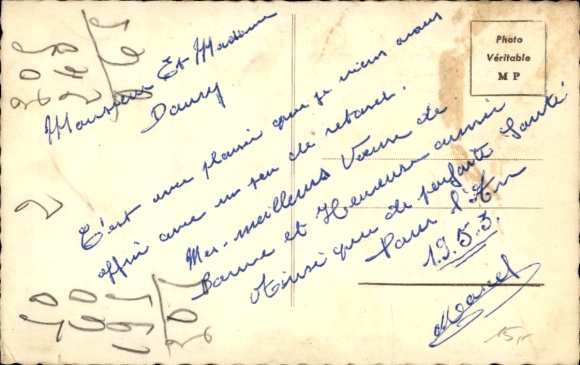 Photo
Véritable
M P
Monsieur Et Madame
C'est avec plaisir que je viens vous
offrir avec un peu de retard.
Mes meilleurs Vœux de
Bonne et Heureuse année
Ainsi que de parfaite Santé
Pour l'An
1953.
Marcel